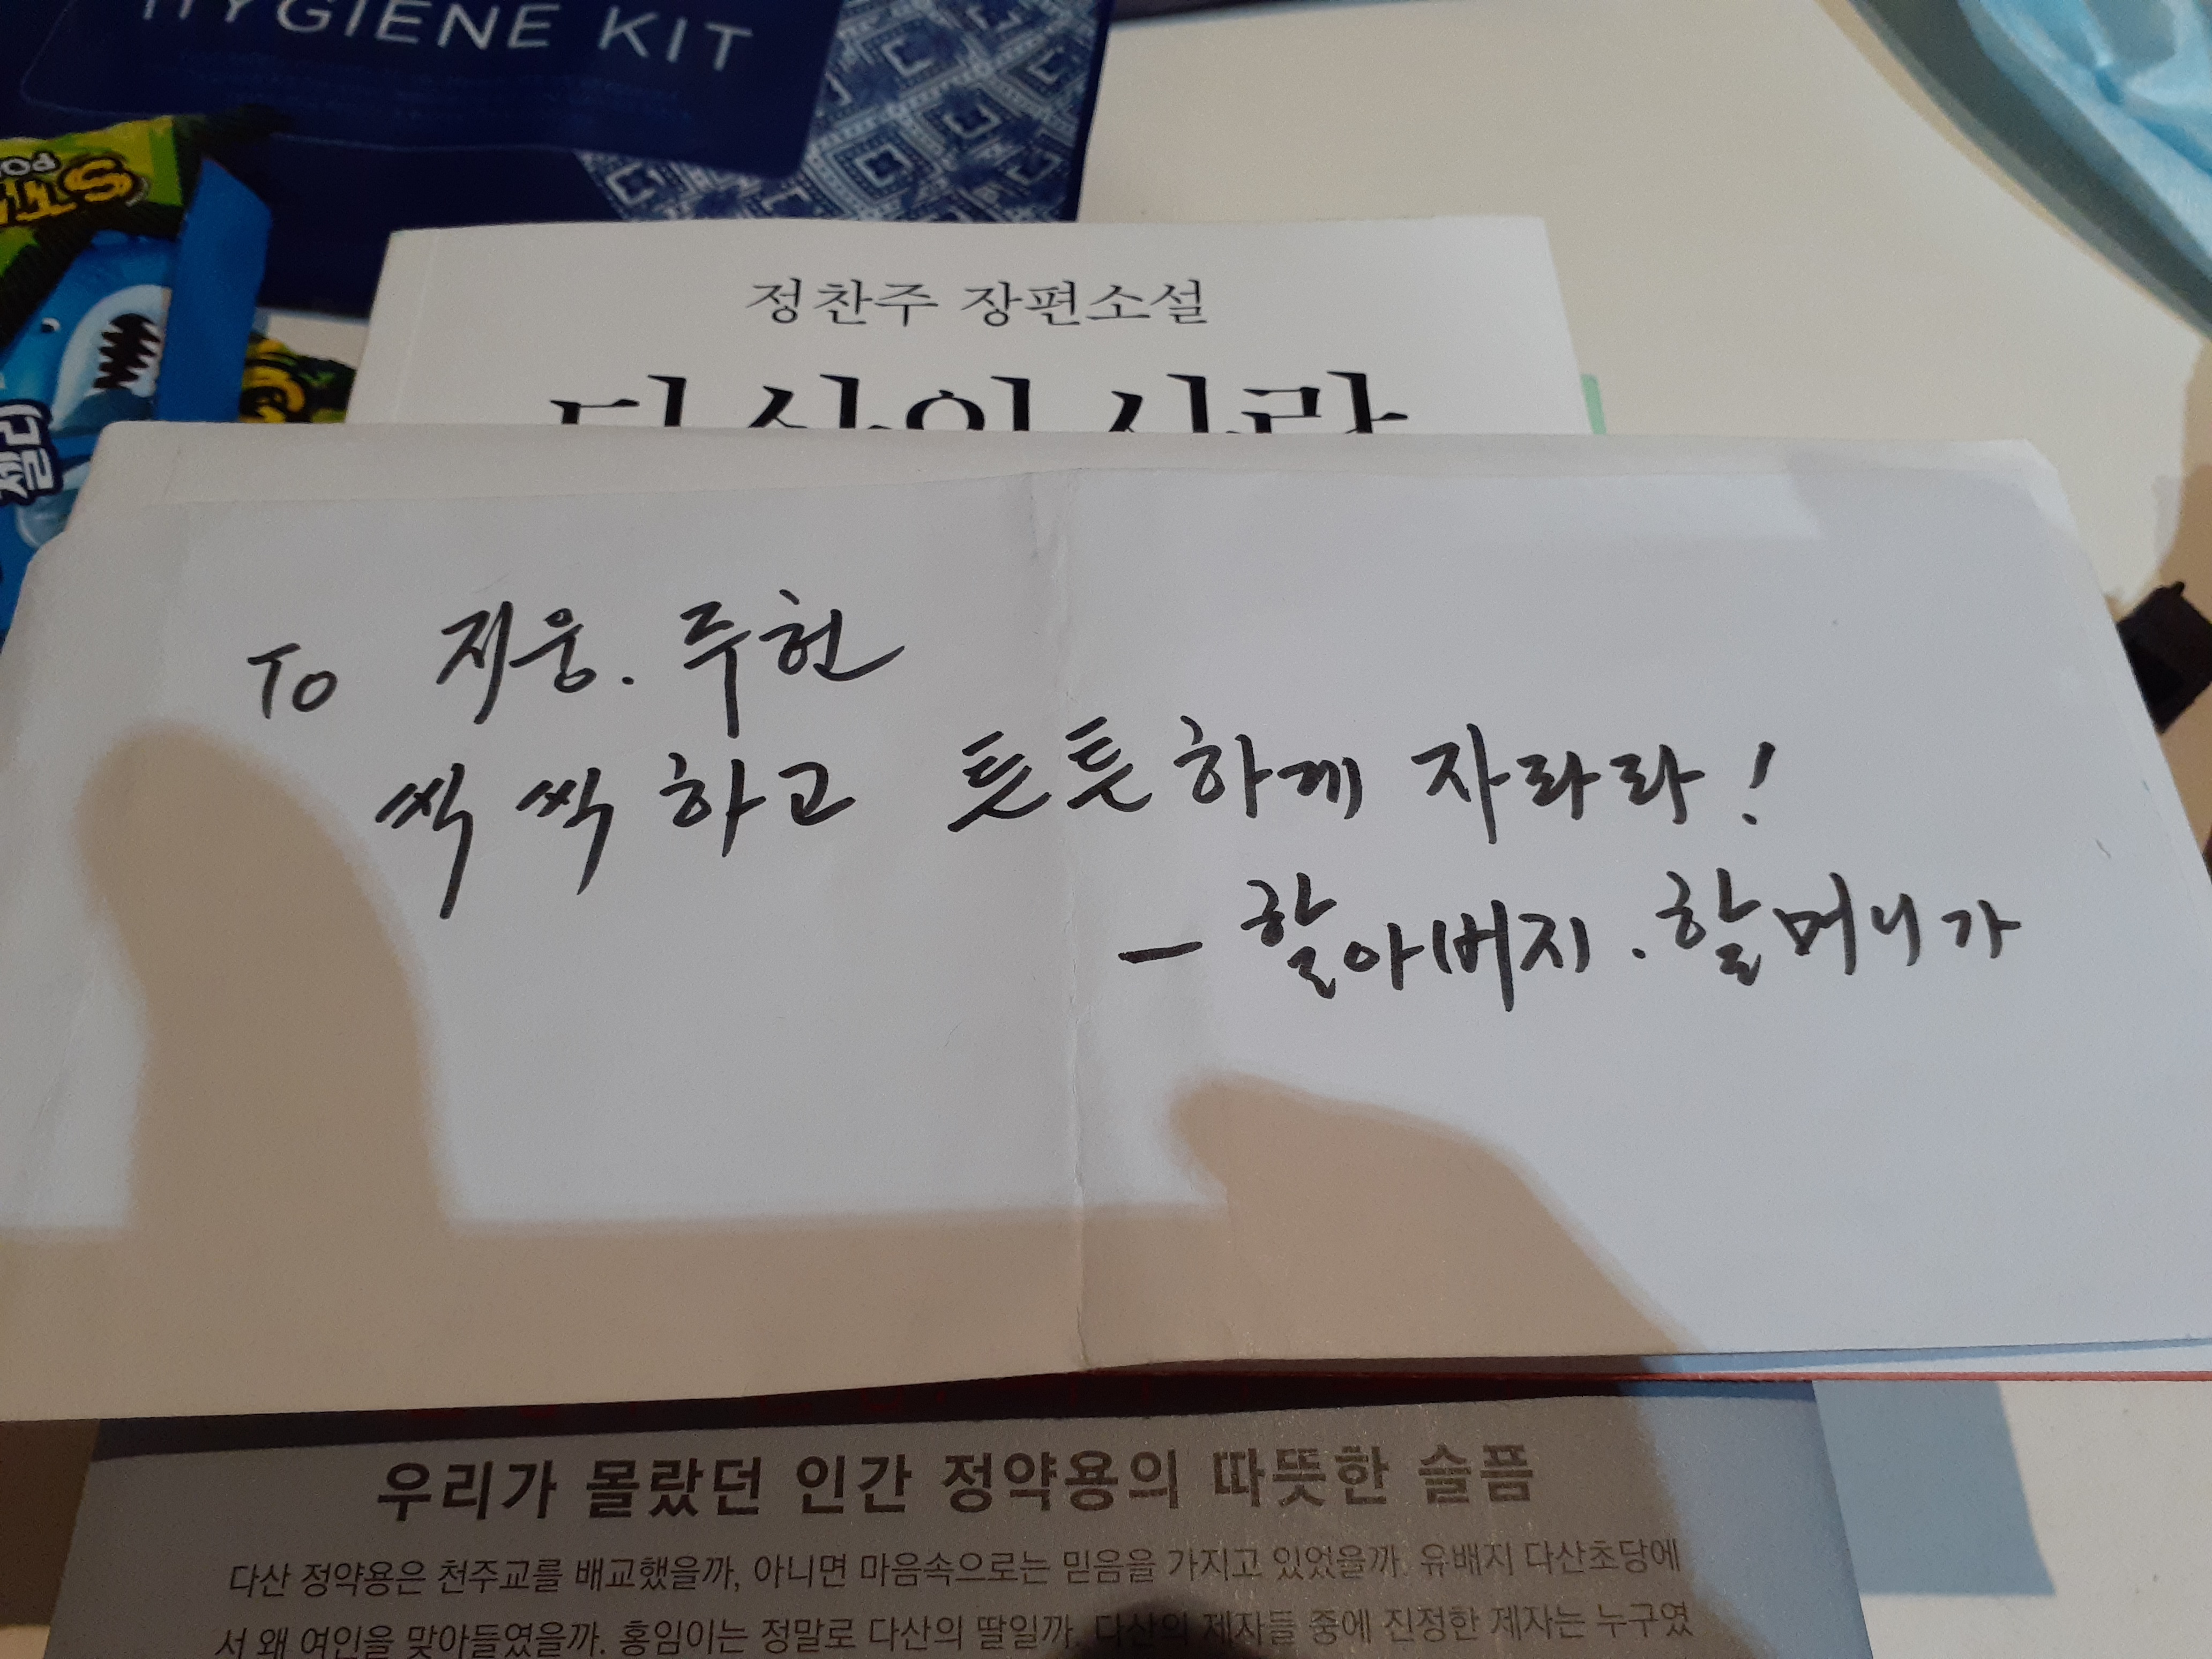 HYGIENE KIT
젤리
정찬주 장편소설
다산의 사랑
To 지웅. 주헌
씩씩하고 튼튼하게 자라라!
- 할아버지 . 할머니가
우리가 몰랐던 인간 정약용의 따뜻한 슬픔
다산 정약용은 천주교를 배교했을까, 아니면 마음속으로는 믿음을 가지고 있었을까. 유배지 다산초당에
서 왜 여인을 맞아들였을까. 홍임이는 정말로 다산의 딸일까. 다산의 제자들 중에 진정한 제자는 누구였